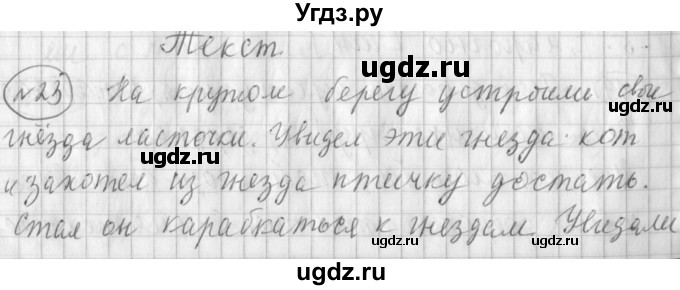 Угдз.ру
Текст.
№23 На крутом берегу устроили свои
гнёзда ласточки. Увидел эти гнезда кот
и захотел из гнезда птичку достать.
Стал он карабкаться к гнездам. Увидали
ugdz.ru
ugdz.ru
ugdz.ru
ugdz.ru
ugdz.ru